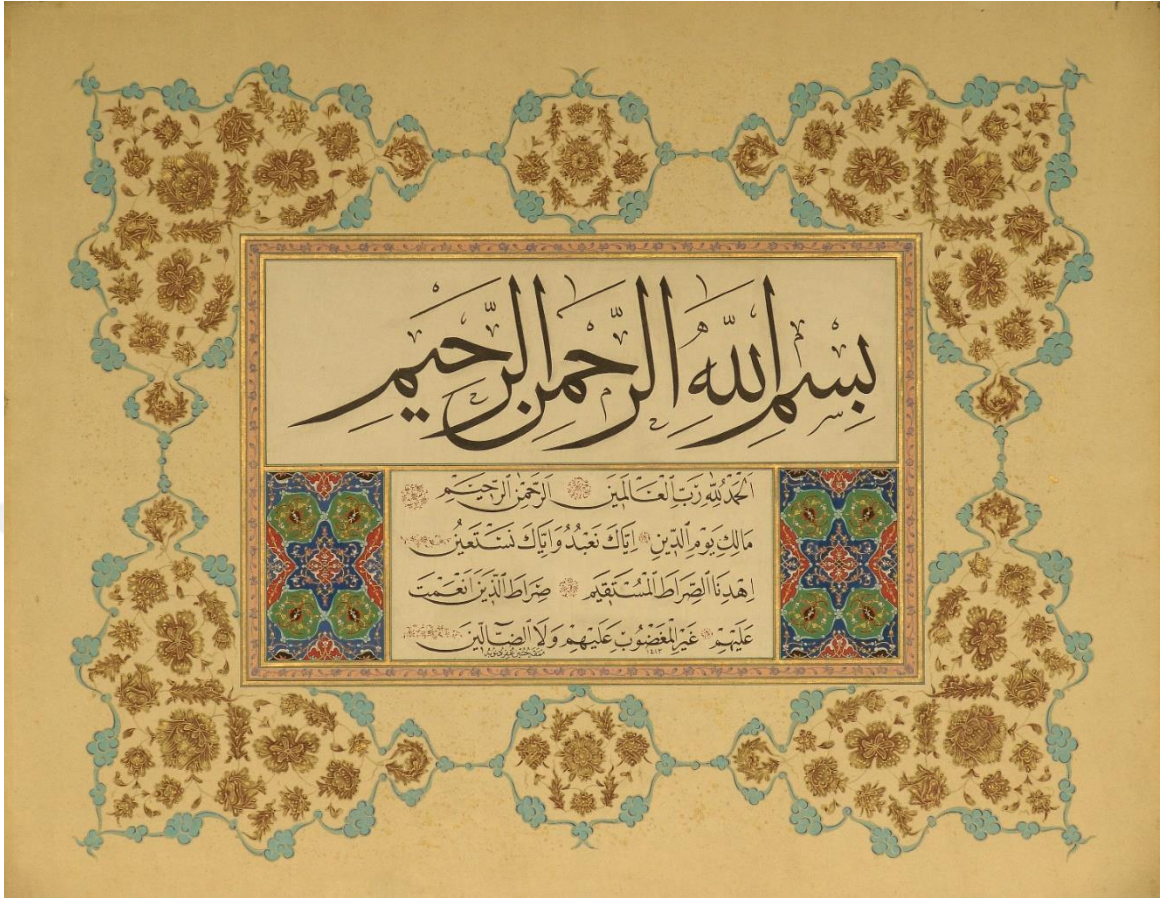 بِسْمِ اللّٰهِ الرَّحْمٰنِ الرَّحِيمِ
اَلْحَمْدُ لِلّٰهِ رَبِّ الْعَالَمِينَ الرَّحْمٰنِ الرَّحِيمِ
مَالِكِ يَوْمِ الدِّينِ اِيَّاكَ نَعْبُدُ وَاِيَّاكَ نَسْتَعِينُ
اِهْدِنَا الصِّرَاطَ الْمُسْتَقِيمَ صِرَاطَ الَّذِينَ اَنْعَمْتَ
عَلَيْهِمْ غَيْرِ الْمَغْضُوبِ عَلَيْهِمْ وَلَا الضَّآلِّينَ
١٤١٣